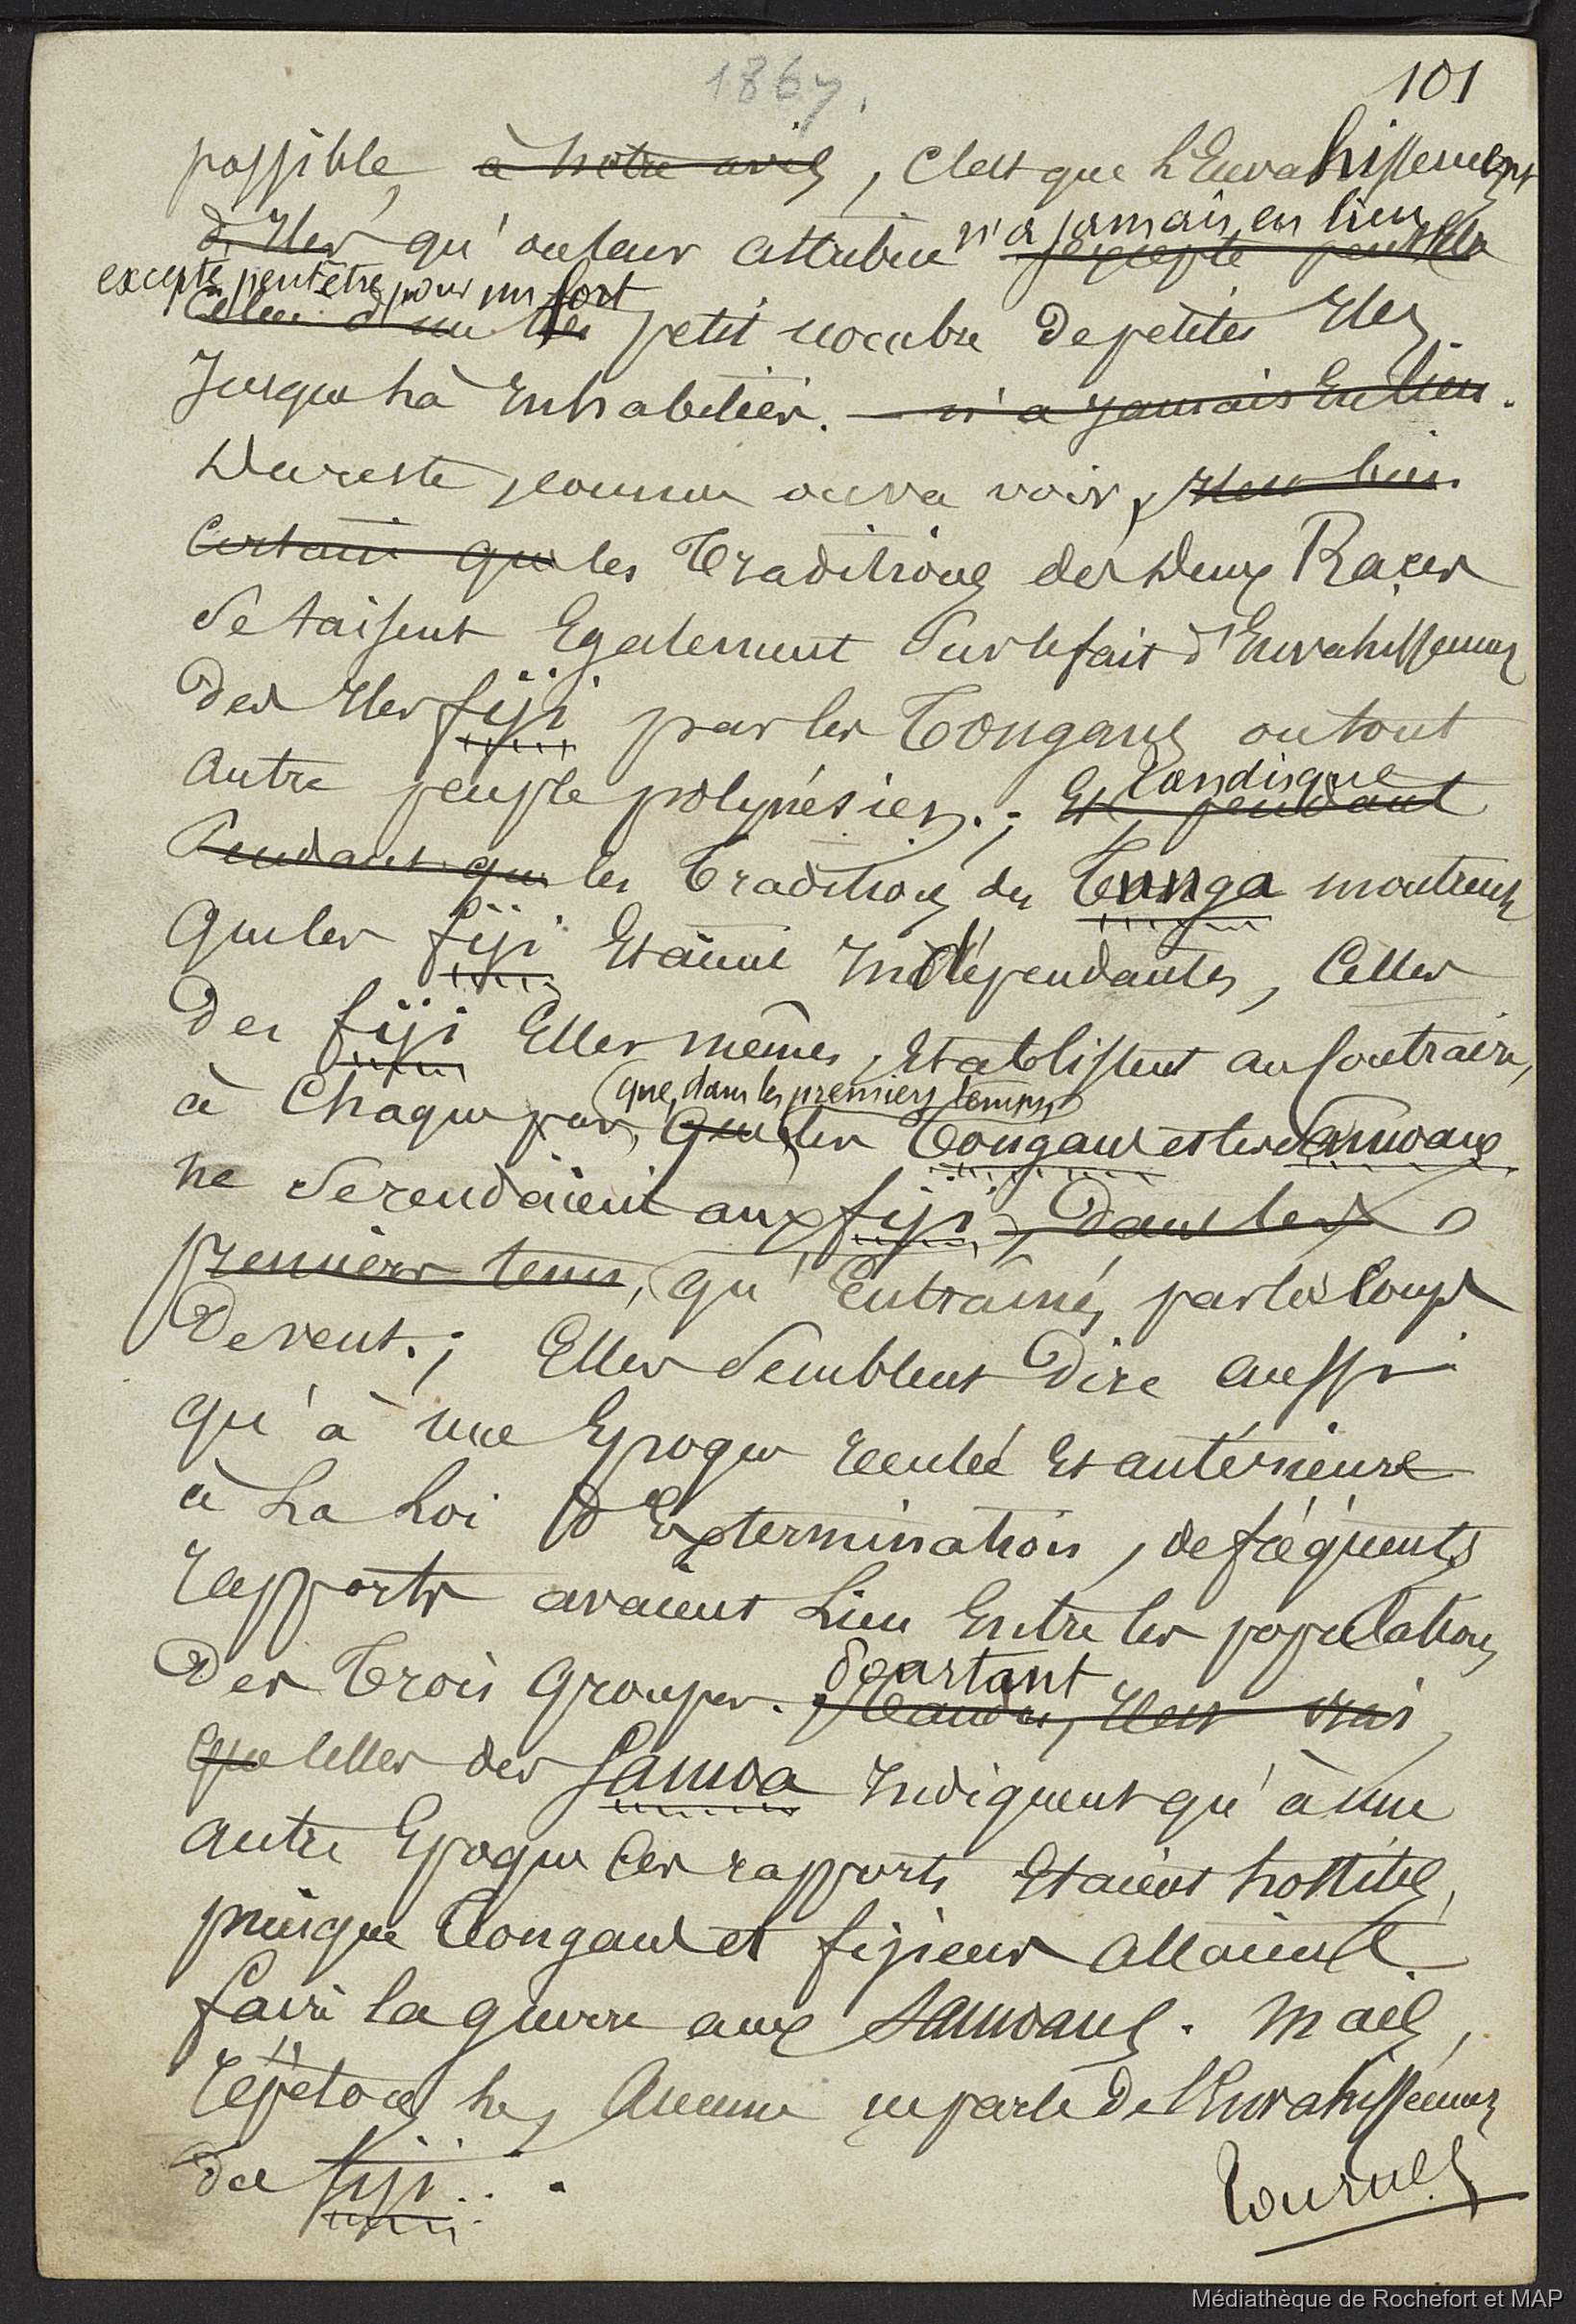 1867.
101
possible, à notre avis, C'est que L'Envahissement
d'Iles qu'on leur attribue n'a jamais eu lieu excepté peut être
excepté peut être pour un fort
Celui d'un très petit nombre de petites Iles
Jusque là Inhabitées. n'a jamais Eu lieu.
Du reste, comme on va voir, Il est bien
Certain que les Traditions des Deux Races
Se taisent Egalement Sur le fait d'Envahissement
Des Iles fiji par les Tongans ou tout
autre peuple polynésien.; Et, pendant tandis que
Pendant que les Traditions des Tunga montrent
Que les fiji Etaient Indépendantes, Celles
Des fiji Elles mêmes, Etablissent au Contraire,
(que, dans les premiers temps,
à Chaque pas, que les Tongans et les Samoans
ne Se rendaient aux fiji, Dans les
premiers tems, qu'Entraînés par les Coups
De vent.; Elles Semblent Dire aussi
qu'à une Epoque reculée Et antérieure
à La Loi D'Extermination, de fréquents
rapports avaient Lieu Entre les populations
Des Trois Groupes. Pourtant Il est vrai
que Celles des Samoa Indiquent qu'à une
autre Epoque Ces rapports Etaient hostiles,
puisque Tongans et fijiens allaient
faire la guerre aux Samoans. Mais,
répétons le, Aucune ne parle De l'Envahissement
des fiji.
Tournez
Médiathèque de Rochefort et MAP